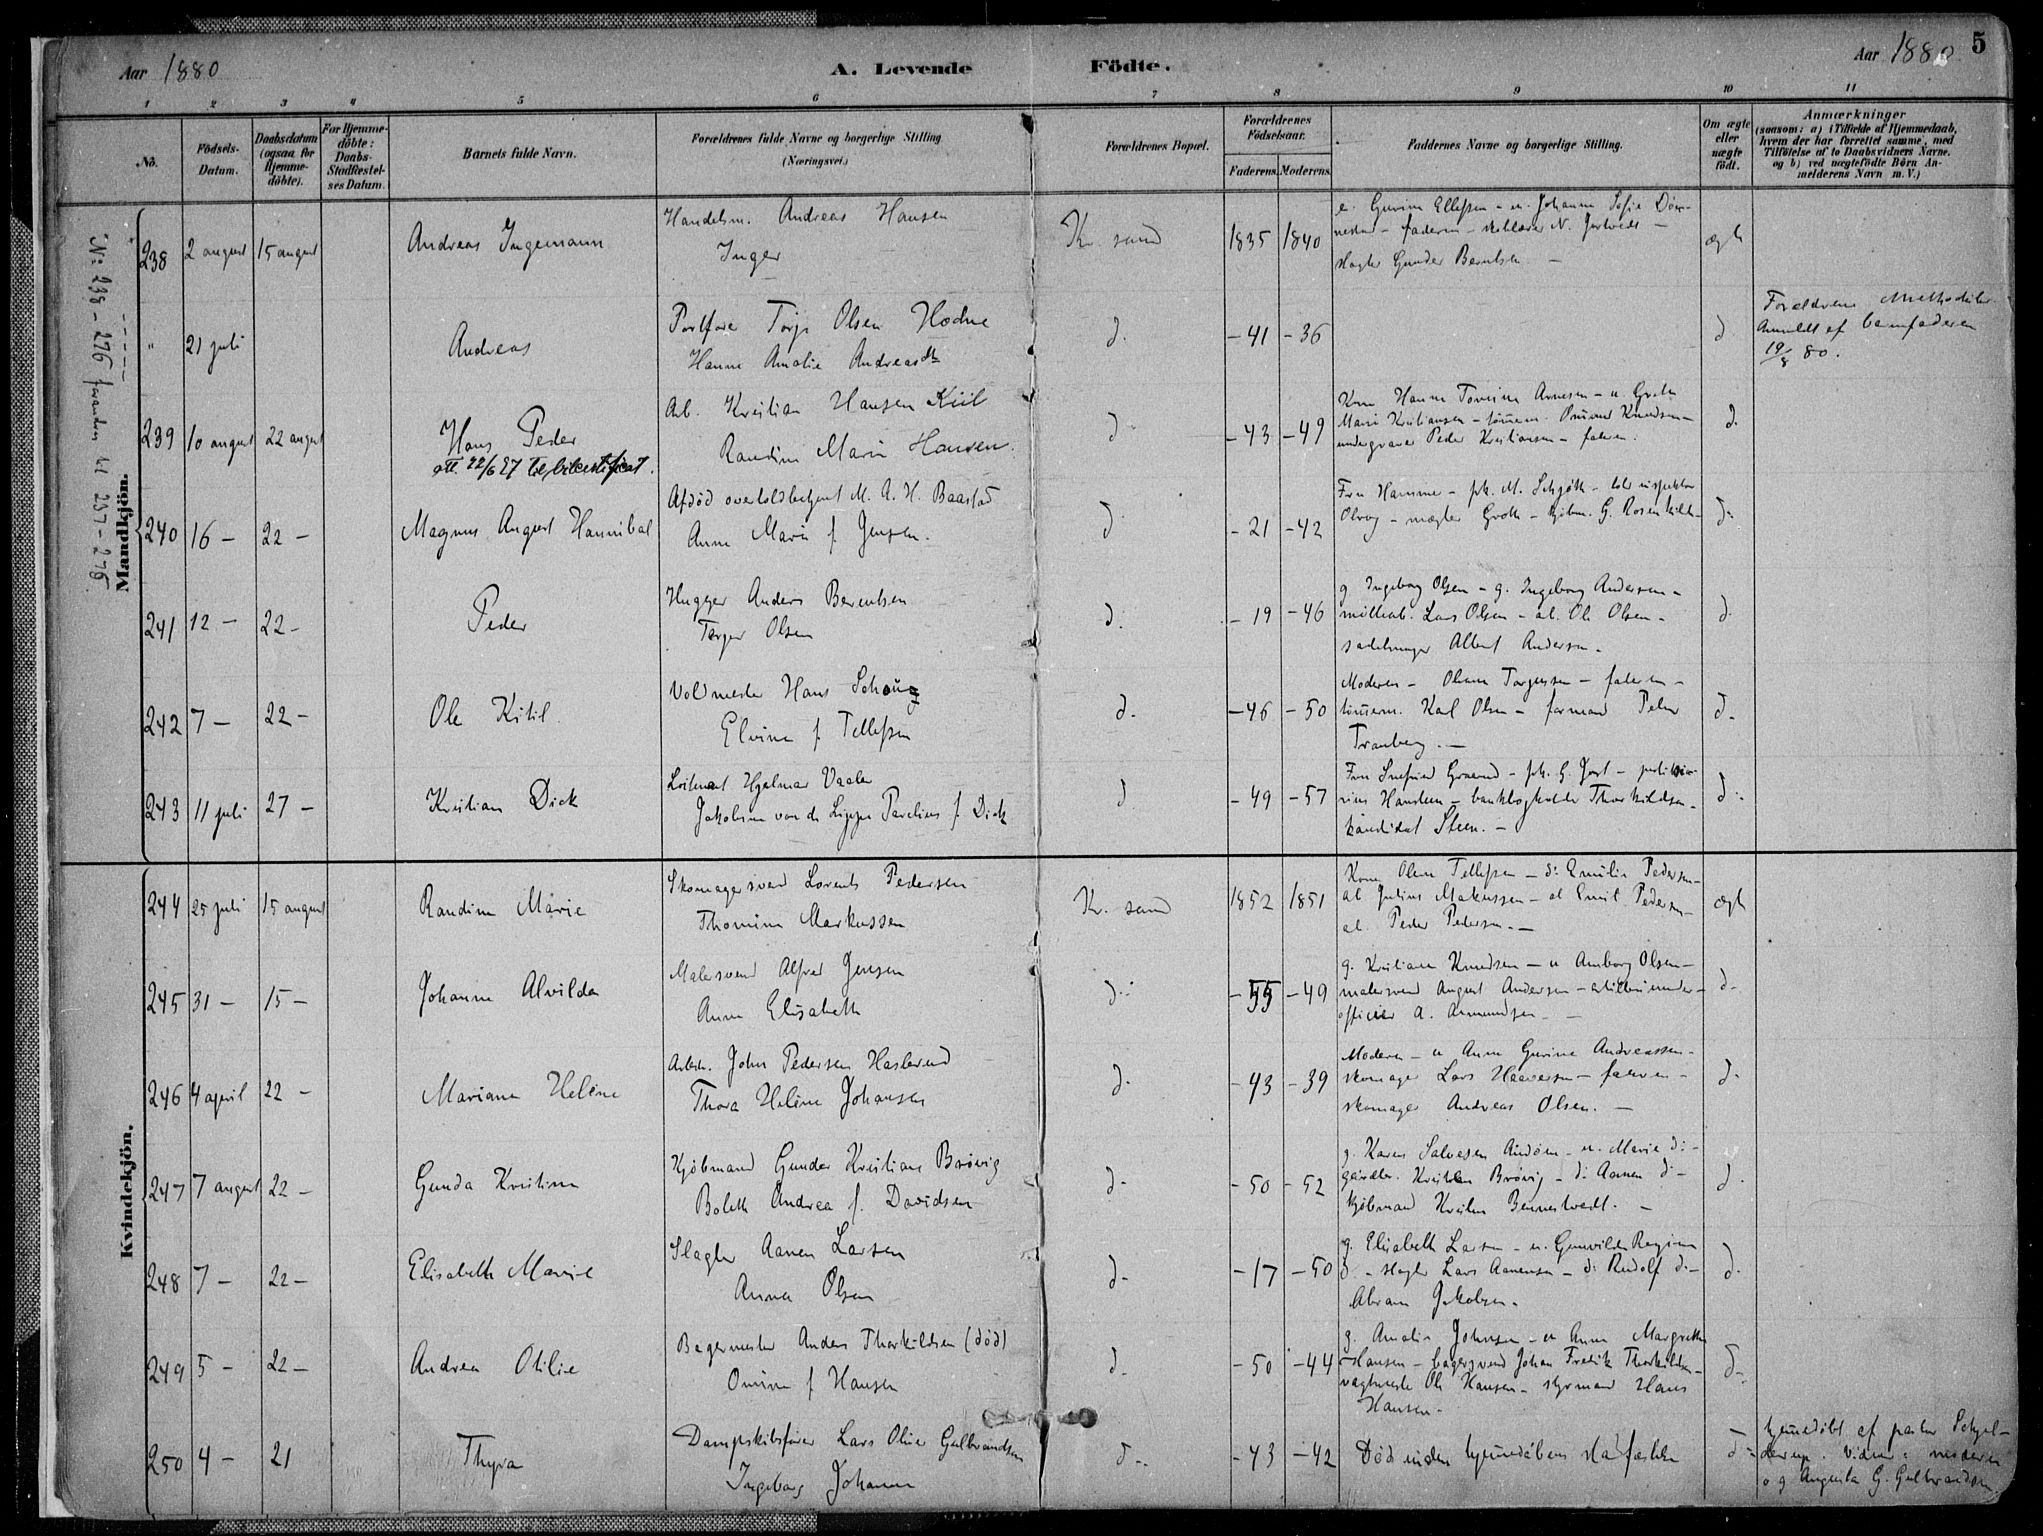 Aar 1880
A. Levende Födte.
Aar 1880
5
1 2 3 4 5 6 7 8 9 10 11
No.
Födsels-Datum.
Daabsdatum (ogsaa for Hjemmedöbte).
For Hjemmedöbte: Daabs-Stadfæstelses Datum.
Barnets fulde Navn.
Forældrenes fulde Navne og borgerlige Stilling (Næringsvei.)
Forældrenes Bopæl.
Forældrenes Födselsaar.
Faderens. Moderens.
Faddernes Navne og borgerlige Stilling.
Om ægte eller uægte födt.
Anmærkninger
(saasom: a) i Tilfælde af Hjemmedaab, hvem der har forrettet samme, med Tilföielse af to Daabsvidners Navne, og b) ved uægtefödte Börn Anmelderens Navn m. V.)
"No 238 - 276 forandres til 237 - 275
Mandkjön.
238 2 august 15 august Andreas Ingemann
Handelsm. Andreas Hansen
Inger
Kr. sand 1835 1840
e. Gurine Ellefsen - u. Johanne Sofie
faderen - N.
slagter Gunder Berntsen -
ægte
" 21 juli Andreas
Olsen Hodne
Hanne Amalie Andreasdt
d. -41 -36 d
Forældrene Methodister
Anmeldt af barnefaderen
19/8 80.
239 10 august 22 august Hans Peder
att. 22/6 27
Arb. Kristian Hansen Kiil
Randine Marie Hansen.
d -43 -49
Kone Hanne Arnesen - u Grete
Marie Kristiansen - tömerm. Knudsen -
Peder Kristiansen - faderen.
d.
240 16 - 22 - Magnus August Hannibal
Afdöd overtoldbetjent M. A. H. Baastad
Anne Marie f Jensen.
d -21 -42
Fru Hamme - frk. M. Schjøth - inspektør
- mægler Groth - kjøbm. G. Rosenkilde -
d-
241 12 - 22 - Peder
Hugger Anders Berentsen
Torger Olsen
d. -19 -46
g Ingeborg Olsen - g. Ingeborg Andersen -
möllearb. Lars Olsen - ab. Ole Olsen -
Albert Andersen.
d.
242 7 - 22 - Ole Kitil
Hans Schaug
Elvine f Tellefsen
d. -46 -50
Moderen - Torgersen - faderen -
tömerm. Karl Olsen - formand Peder
Tranberg. -
d.
243 11 juli 27 - Kristian Dick
Hjelmar Vaaler
Jakobine von de Lippe Parelius f Dick
d -49 -57
Fru - frk. G. Jost -
- bankbogholder Thorkildsen -
kandidat Steen. -
d -
Kvindekjön.
244 25 juli 15 august Randine Marie
Skomagersvend Lorents Pedersen
Thomine Markussen
Kr. sand 1852 1851
Kone Tellefsen - di Emilie Pedersen -
ab Julius Makussen - ab Emil Pedersen -
ab. Peder Pedersen. -
ægte
245 31 - 15 - Johanne Alvilda
Malersvend Alfred Jensen
Anne Elisabeth
d - -55 -49
g. Kristiane Knudsen - u Amborg Olsen -
malersvend August Andersen - artilleriunder-
officier A. Aamundsen. -
d-
246 4 april 22 - Mariane Helene
Arbeidm. John Pedersen Haslerud
Thora Helene Johansen
d- -43 -39
Moderen - u Anne Gurine Andreassen -
skomager Lars Haaversen - faderen -
skomager Andreas Olsen. -
d-
247 7 august 22 - Gunda Kristine
Kjöbmand Gunder Kristians Brövig
Bolette Andrea f. Davidsen
d- -50 -52
g. Karen Salvesen Andöen - u. Marie di -
gårdbr. Kristen Brövig - di Aanen di -
kjöbmand Kristen Bennestvedt. -
d.
248 7 - 22 - Elisabeth Marie
Slagter Aanen Larsen
Anna Olsen
d- -17 -50
g. Elisabeth Larsen - u. Gunvilde Regine
d. - slagter Lars Aanensen - di Rudolf di -
Abram Jakobsen.
d.
249 5 - 22 - Andrea Otilie
Bagermester Anders Thorkildsen (död)
Omine f Hansen
d- -50 -44
g. Amalie Johnsen - u Anne Margrethe
Hansen - bagersvend Johan Fredrik Thorkildsen -
Ole Hansen - styrmand Hans
Hansen -
d-
250 4 - 21 Thyra
Dampskibsförer Lars Oluer Gulbrandsen
Ingeborg Johanne
d - -43 -42 Död inden hjemmedåbens stadfæstelse
d -
hjemmedöbt af pastor Schjel-
derup. Vidner: moderen
og Augusta G. Gulbrandsen.